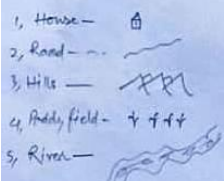 1, House —
2, Road - - -
3, Hills —
4, Paddy field -
5, River —